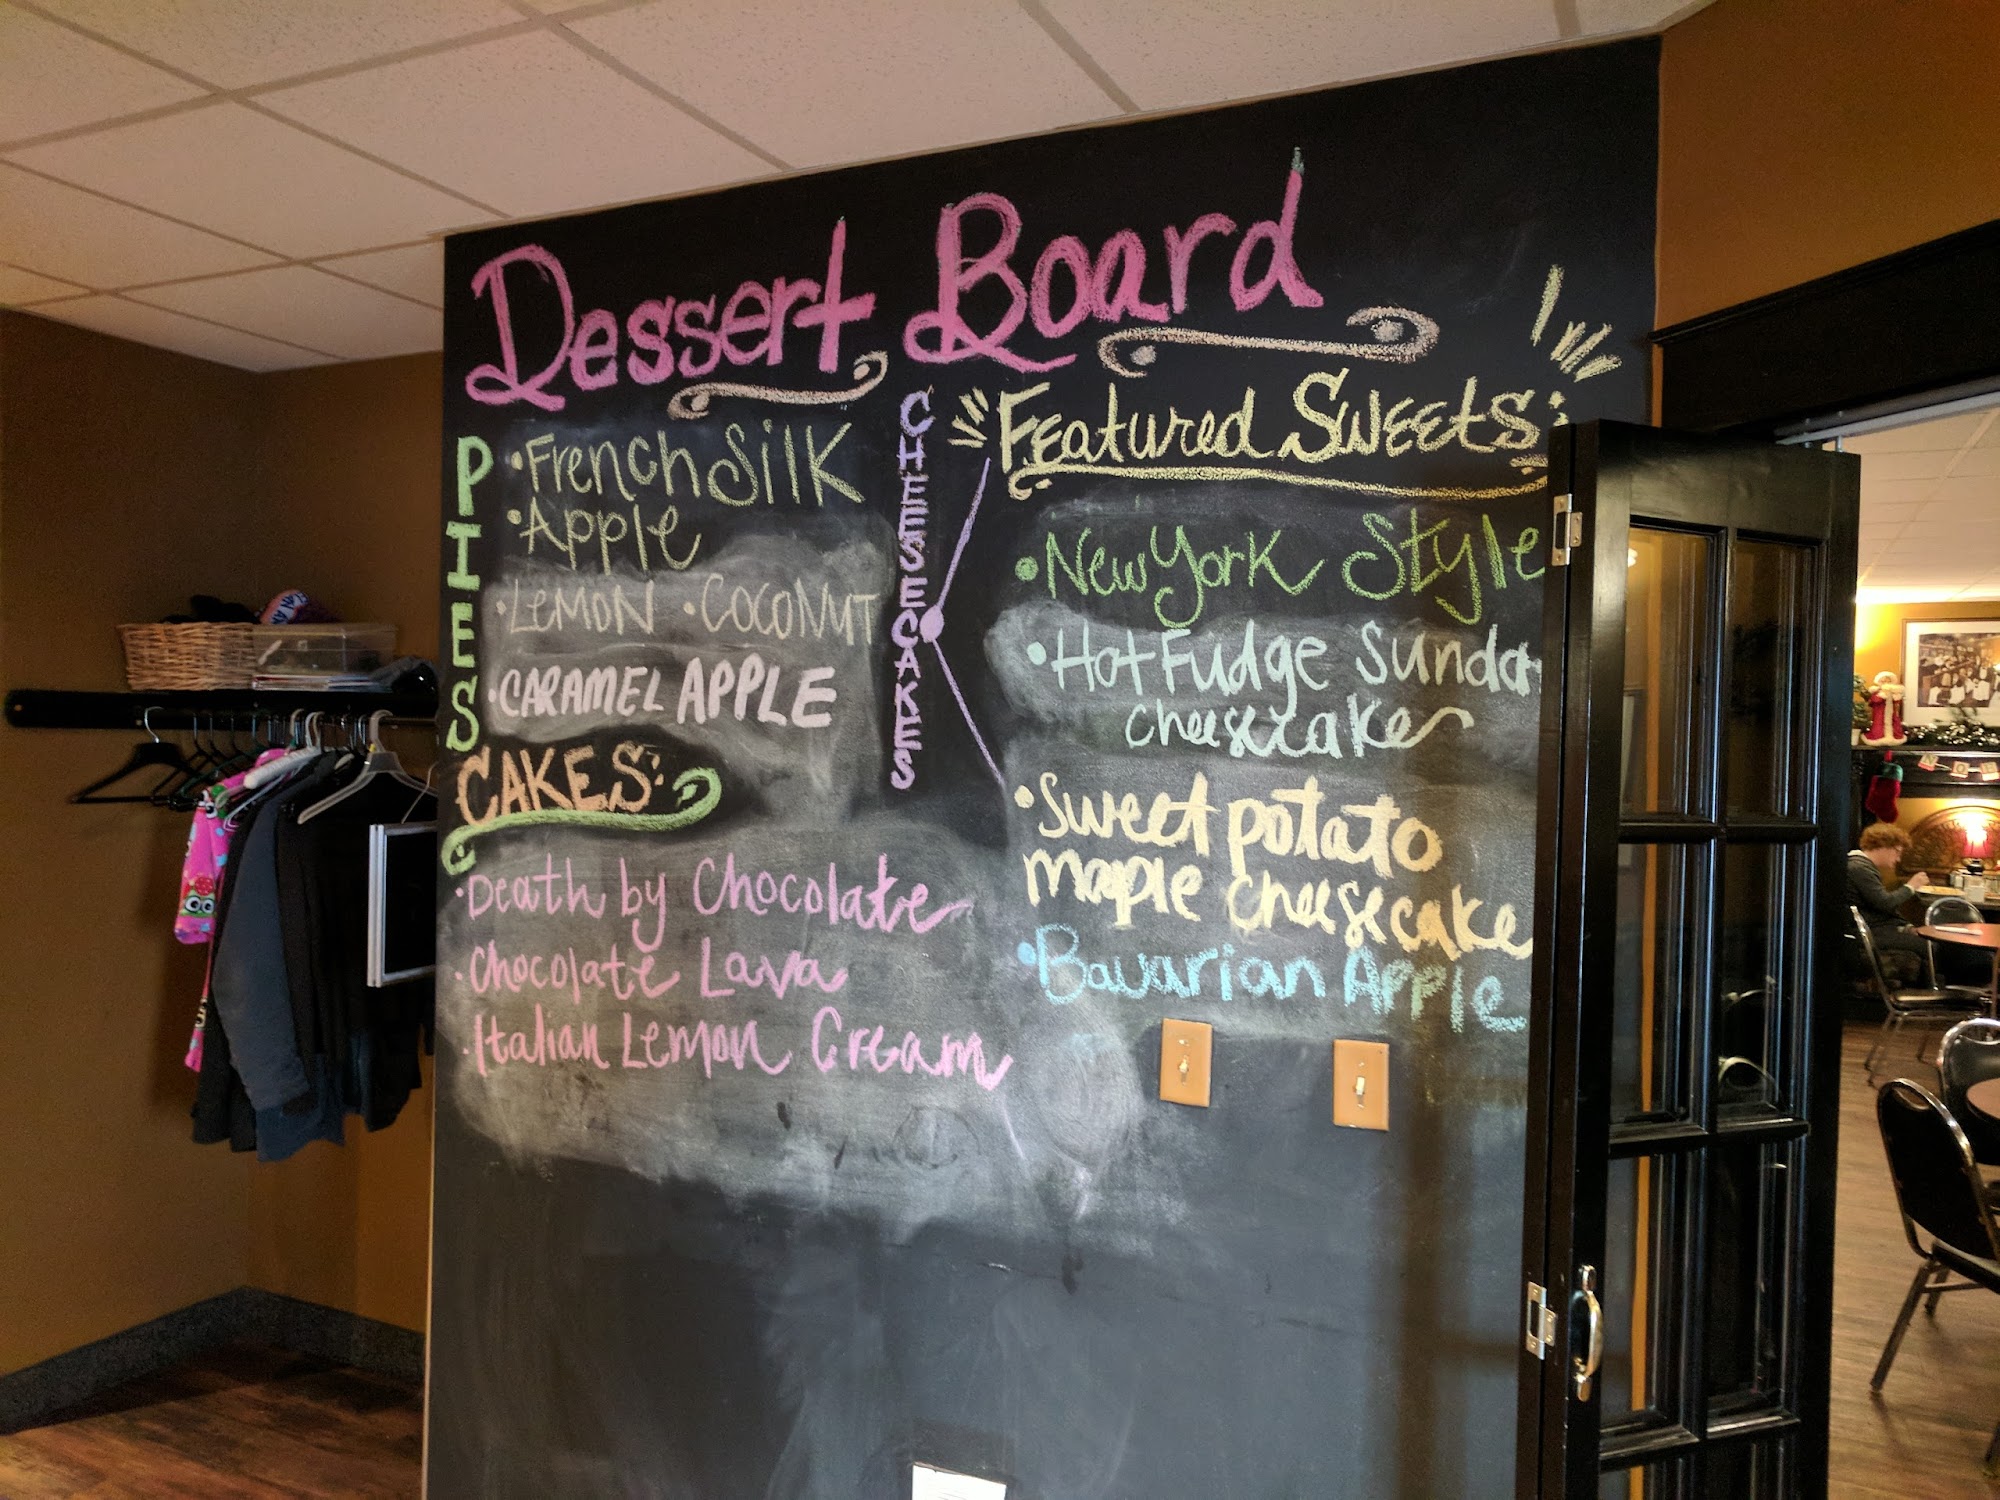 Dessert Board
PIES
• French Silk
• Apple
• Lemon • Coconut
• Caramel Apple
CAKES:
• Death by Chocolate
• Chocolate Lava
• Italian Lemon Cream
CHEESECAKES
Featured Sweets:
• New York Style
• Hot Fudge Sunda
cheesecake
• Sweet potato
maple cheesecake
• Bavarian Apple